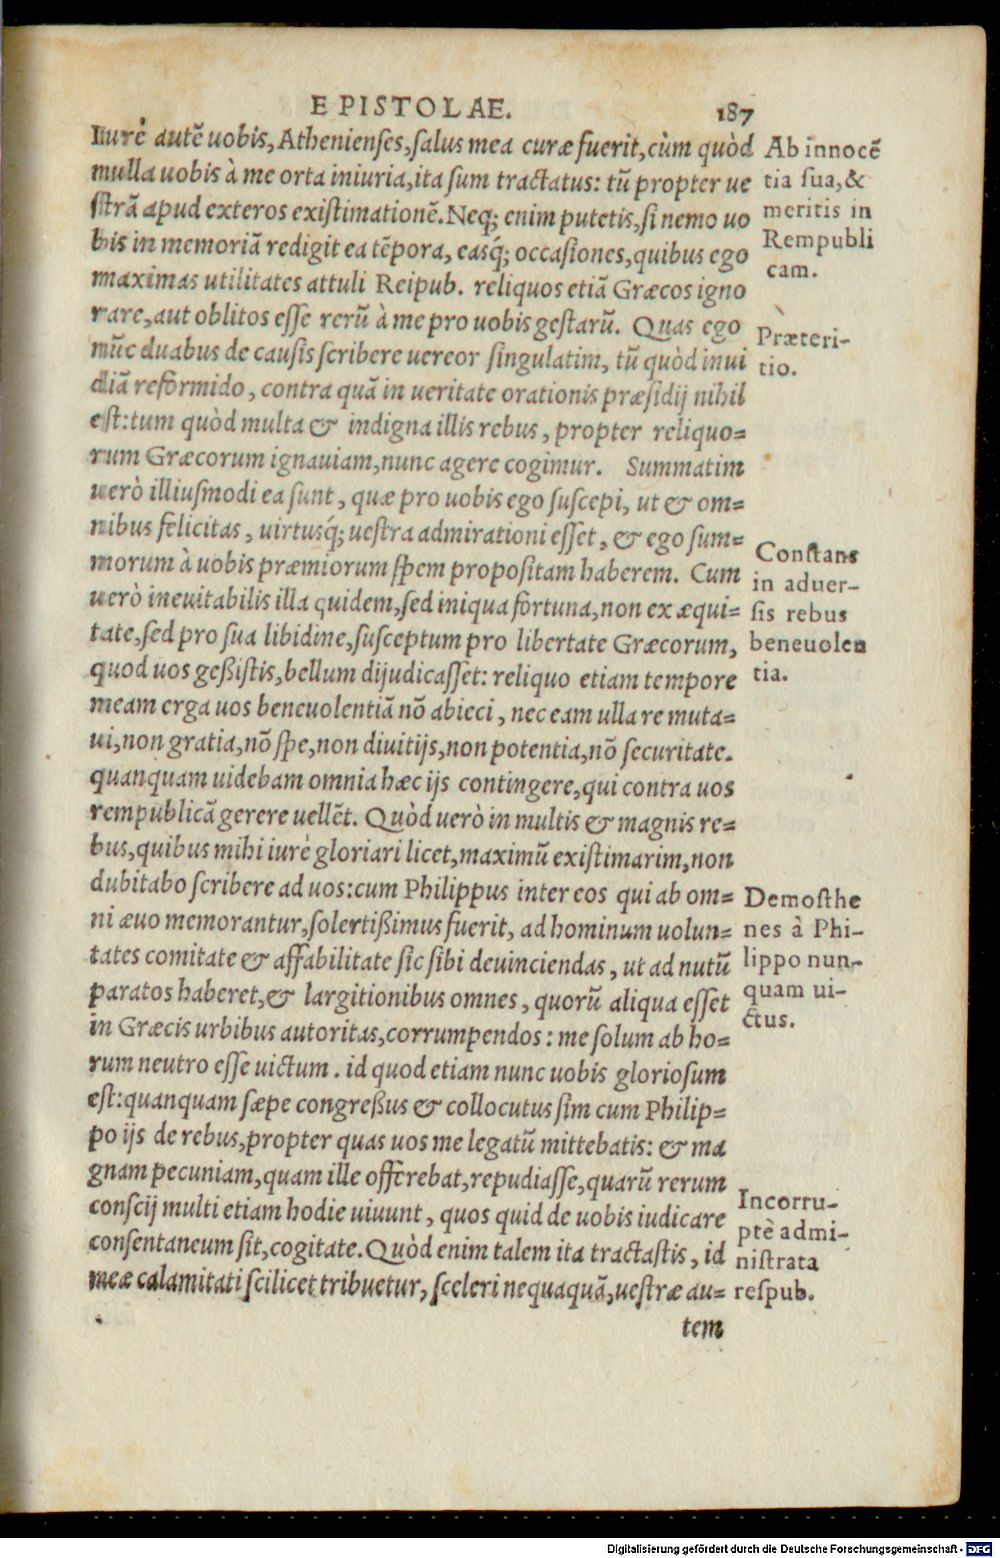 EPISTOLAE. 187
Iurè autē uobis, Athenienses, salus mea curæ fuerit, cùm quòd
mulla uobis à me orta iniuria, ita sum tractatus: tũ propter ue
strã apud exteros existimationē. Neq; enim putetis, si nemo uo
bis in memoriã redigit ea tēpora, easq́; occasiones, quibus ego
maximas utilitates attuli Reipub. reliquos etiã Græcos igno
rare, aut oblitos esse rerũ à me pro uobis gestarũ. Quas ego
nũc duabus de causis scribere uereor singulatim, tũ quòd inui
diã reformido, contra quã in ueritate orationis præsidij nihil
est: tum quòd multa & indigna illis rebus, propter reliquo=
rum Græcorum ignauiam, nunc agere cogimur. Summatim
uerò illiusmodi ea sunt, quæ pro uobis ego suscepi, ut & om=
nibus felicitas, uirtusq́; uestra admirationi esset, & ego sum=
morum à uobis præmiorum spem propositam haberem. Cum
uerò ineuitabilis illa quidem, sed iniqua fortuna, non ex æqui=
tate, sed pro sua libidine, susceptum pro libertate Græcorum,
quod uos geßistis, bellum dijudicasset: reliquo etiam tempore
meam erga uos beneuolentiã nõ abieci, nec eam ulla re muta=
ui, non gratia, nõ spe, non diuitijs, non potentia, nõ securitate.
quanquam uidebam omnia hæc ijs contingere, qui contra uos
rempublicã gerere uellēt. Quòd uerò in multis & magnis re=
bus, quibus mihi iurè gloriari licet, maximũ existimarim, non
dubitabo scribere ad uos: cum Philippus inter eos qui ab om=
ni æuo memorantur, solertißimus fuerit, ad hominum uolun=
tates comitate & affabilitate sic sibi deuinciendas, ut ad nutũ
paratos haberet, & largitionibus omnes, quorũ aliqua esset
in Græcis urbibus autoritas, corrumpendos: me solum ab ho=
rum neutro esse uictum. id quod etiam nunc uobis gloriosum
est: quanquam sæpe congreßus & collocutus sim cum Philip=
po ijs de rebus, propter quas uos me legatũ mittebatis: & ma
gnam pecuniam, quam ille offerebat, repudiasse, quarũ rerum
conscij multi etiam hodie uiuunt, quos quid de uobis iudicare
consentaneum sit, cogitate. Quòd enim talem ita tractastis, id
meæ calamitati scilicet tribuetur, sceleri nequaquã, uestræ au=
tem
Ab innocē
tia sua, &
meritis in
Rempubli
cam.
Præteri-
tio.
Constans
in aduer-
sis rebus
beneuolen
tia.
Demosthe
nes à Phi-
lippo nun-
quam ui-
ctus.
Incorru-
ptè admi-
nistrata
respub.
Digitalisierung gefördert durch die Deutsche Forschungsgemeinschaft - DFG